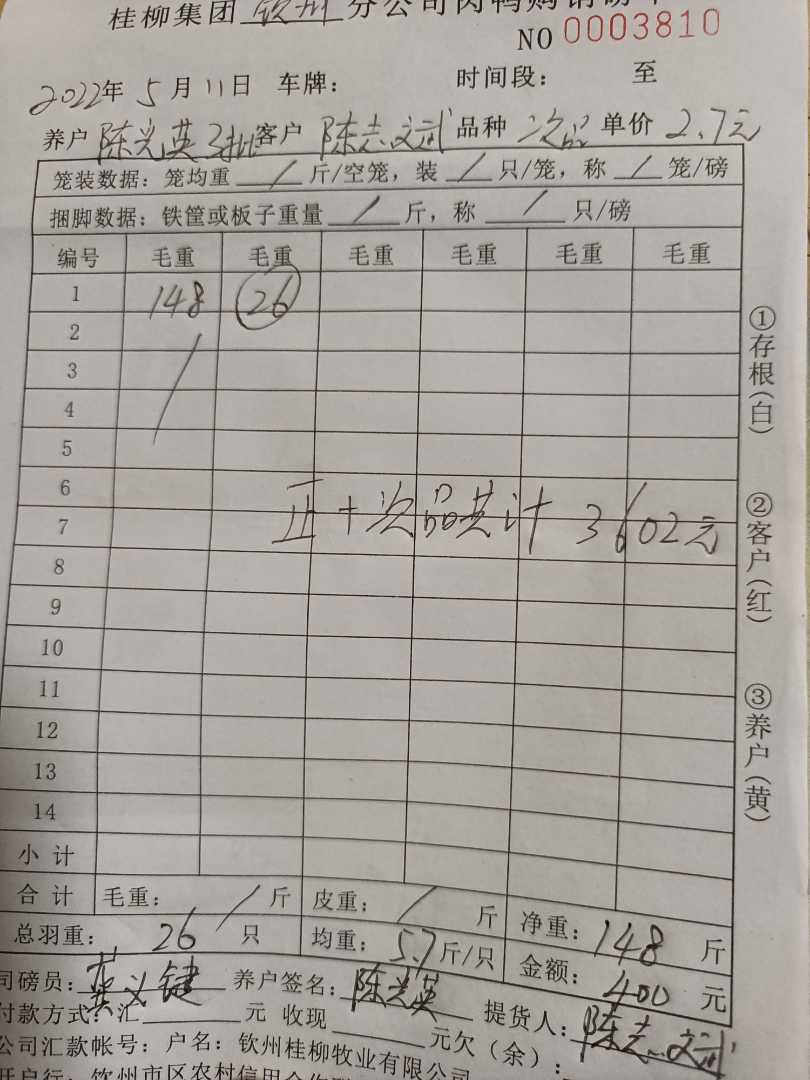 桂柳集团 钦州 分公司肉鸭购销磅单
NO 0003810
2022年 5月 11日 车牌： 时间段： 至
养户 陈光英3批 客户 陈志文武 品种 次品 单价 2.7元
笼装数据：笼均重 / 斤/空笼，装 / 只/笼，称 / 笼/磅
捆脚数据：铁筐或板子重量 / 斤，称 / 只/磅
编号 毛重 毛重 毛重 毛重 毛重 毛重
1 148 26
2 /
3
4
5
6
正+次品共计 3602元
7
8
9
10
11
12
13
14
小计
合计 毛重： / 斤 皮重： / 斤 净重： 148 斤
总羽重： 26 只 均重： 5.7 斤/只 金额： 400 元
司磅员： 义键 养户签名： 陈光英 提货人： 陈志文武
付款方式：汇 元 收现 元欠（余）：
公司汇款帐号：户名：钦州桂柳牧业有限公司
开户行：钦州市区农村信用合作
①存根（白）
②客户（红）
③养户（黄）